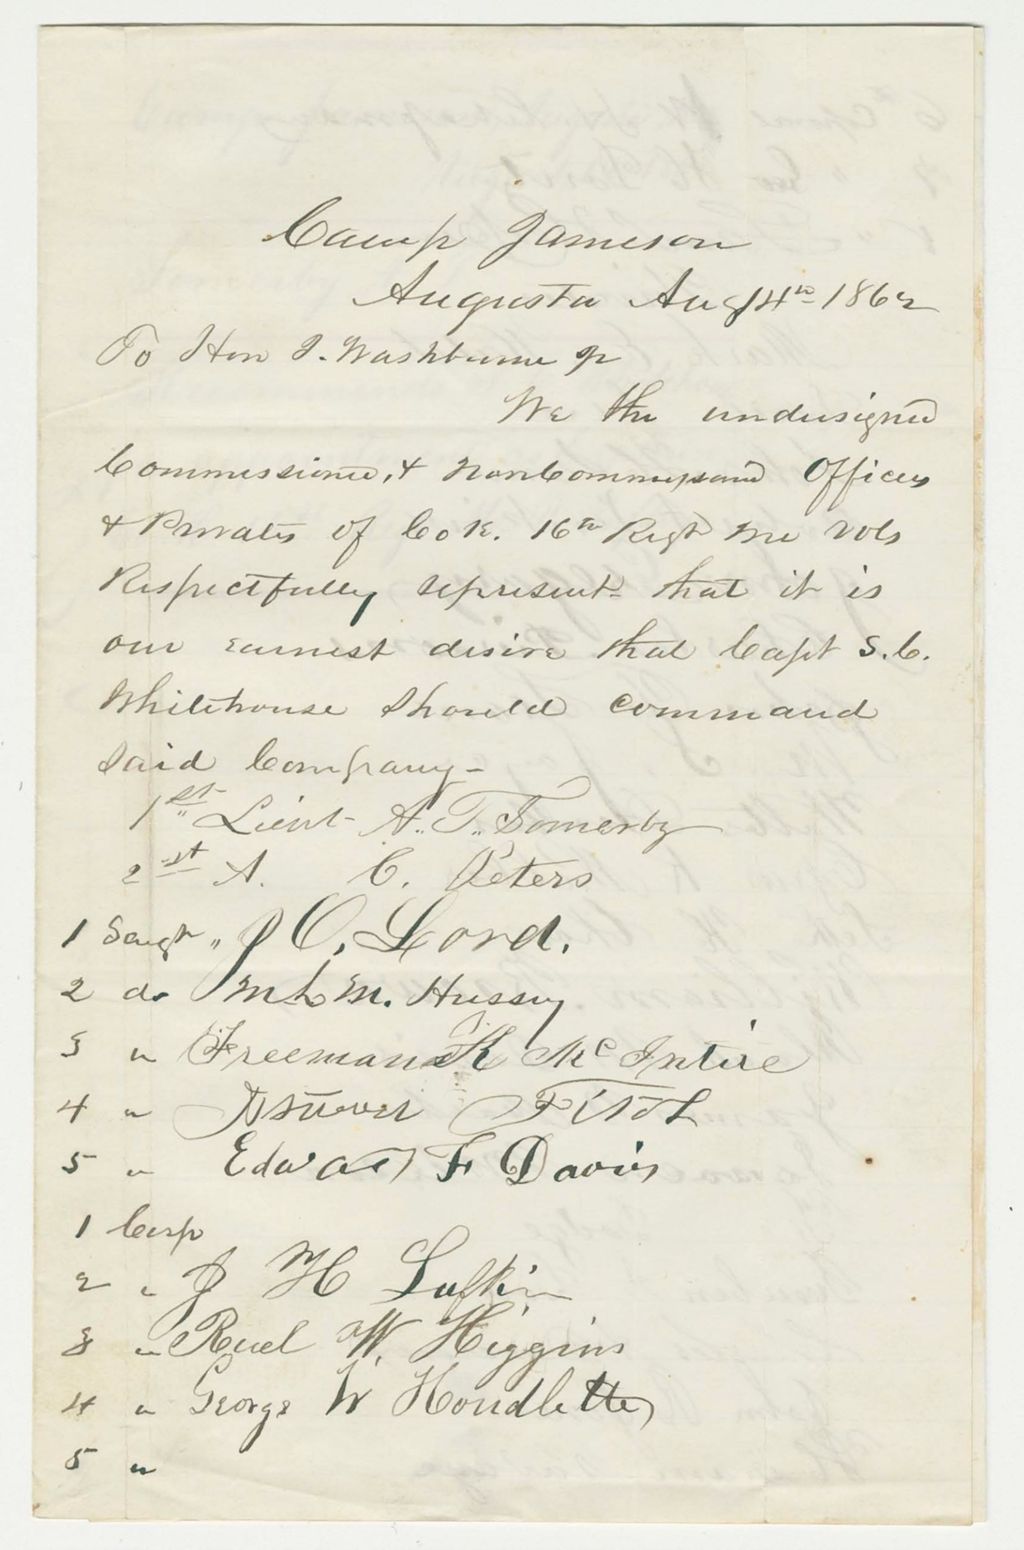 Camp Jameson
Augusta Aug 14th 1862
To Hon I. Washburne Jr
We the undersigned
Commissioned, & Non Commissioned Officers
& Privates of Co K. 16th Regt Me Vols
Respectfully represent that it is
our earnest desire that Capt S. C.
Whitehouse should command
said Company -
1st Lieut A. T. Somerby
2st A. C. Peters
1 Sergt " J O. Lord.
2 do M. Hussey
3 " Freeman K McIntire
4 " Fitch
5 " Edward F Davis
1 Corp
2 " J H Lufkin
3 " Ruel W. Higgins
4 " George W Houdlette
5 "